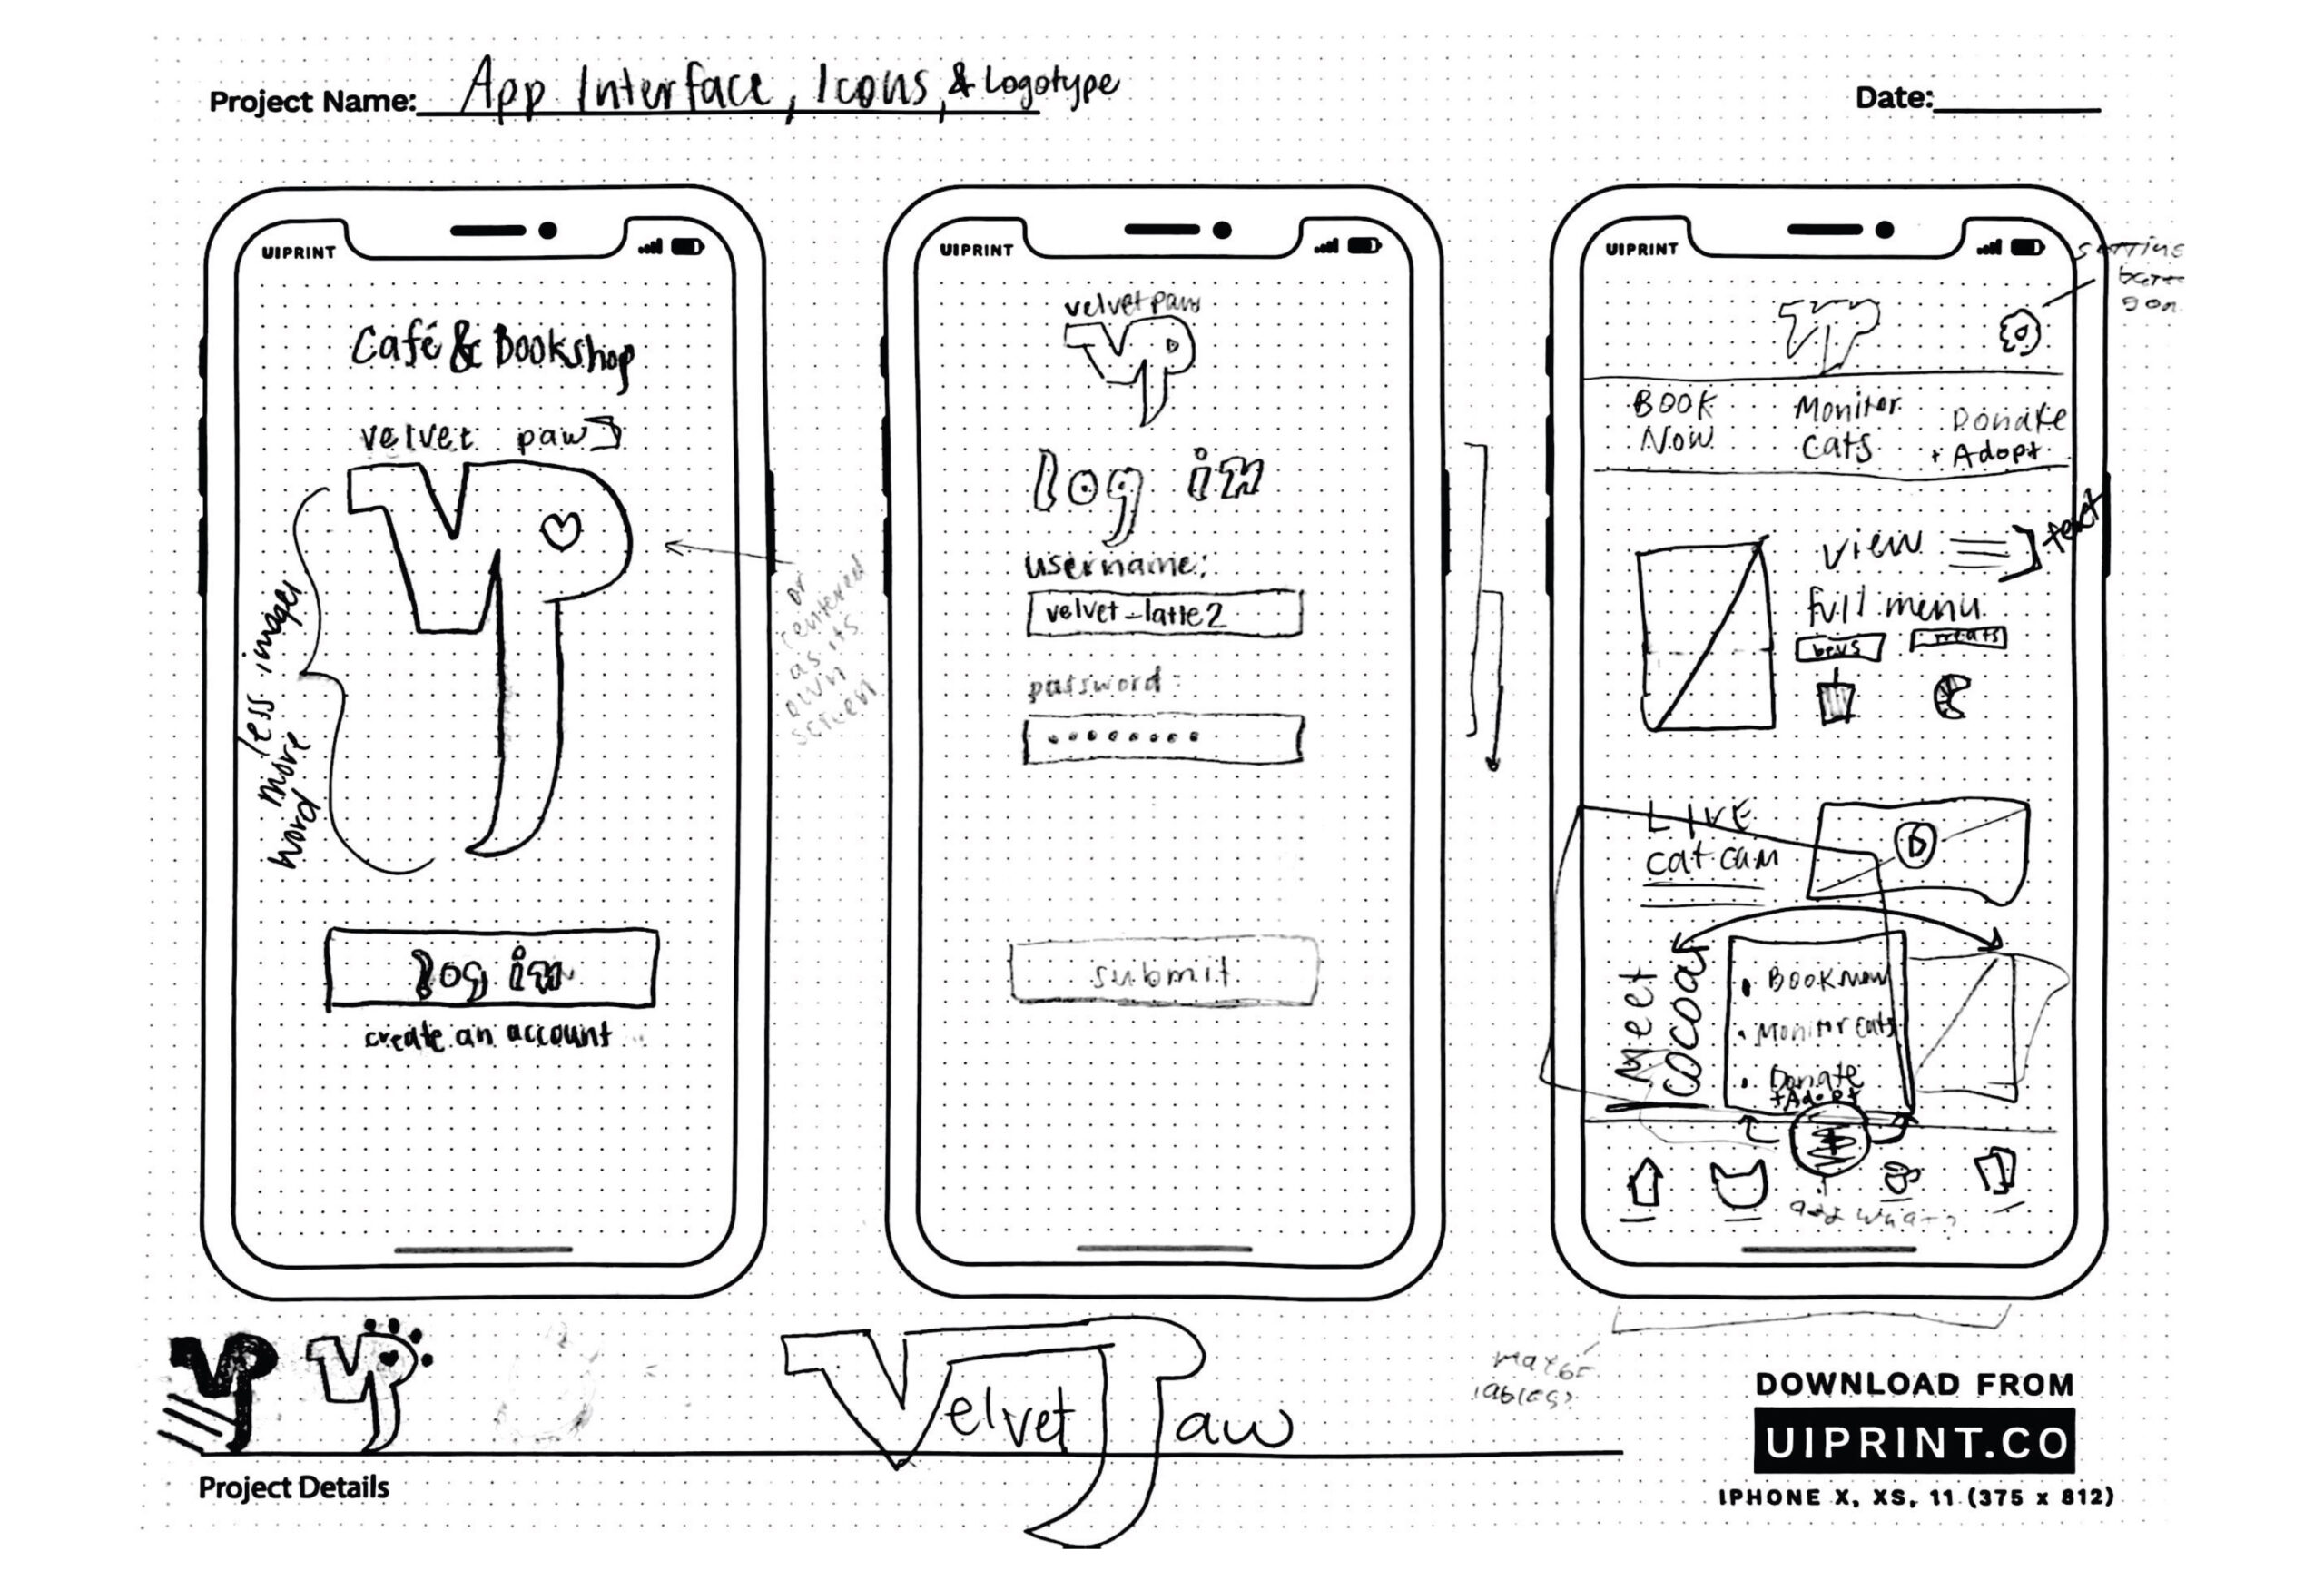 Project Name: App Interface, Icons, & Logotype
Date:
UIPRINT
Café & Bookshop
velvet paw
less image
more
word
log in
create an account
or
centered
as its
own
screen
UIPRINT
velvet paw
log in
username:
velvet_latte2
password:
submit
UIPRINT
BOOK
NOW
Monitor
Cats
Donate
+ Adopt
view
text
full menu
bevs
treats
LIVE
cat cam
Meet
cocoa
• BOOK now
• Monitor cats
• Donate
+ Adopt
Velvet Paw
Project Details
DOWNLOAD FROM
UIPRINT.CO
IPHONE X, XS, 11 (375 x 812)